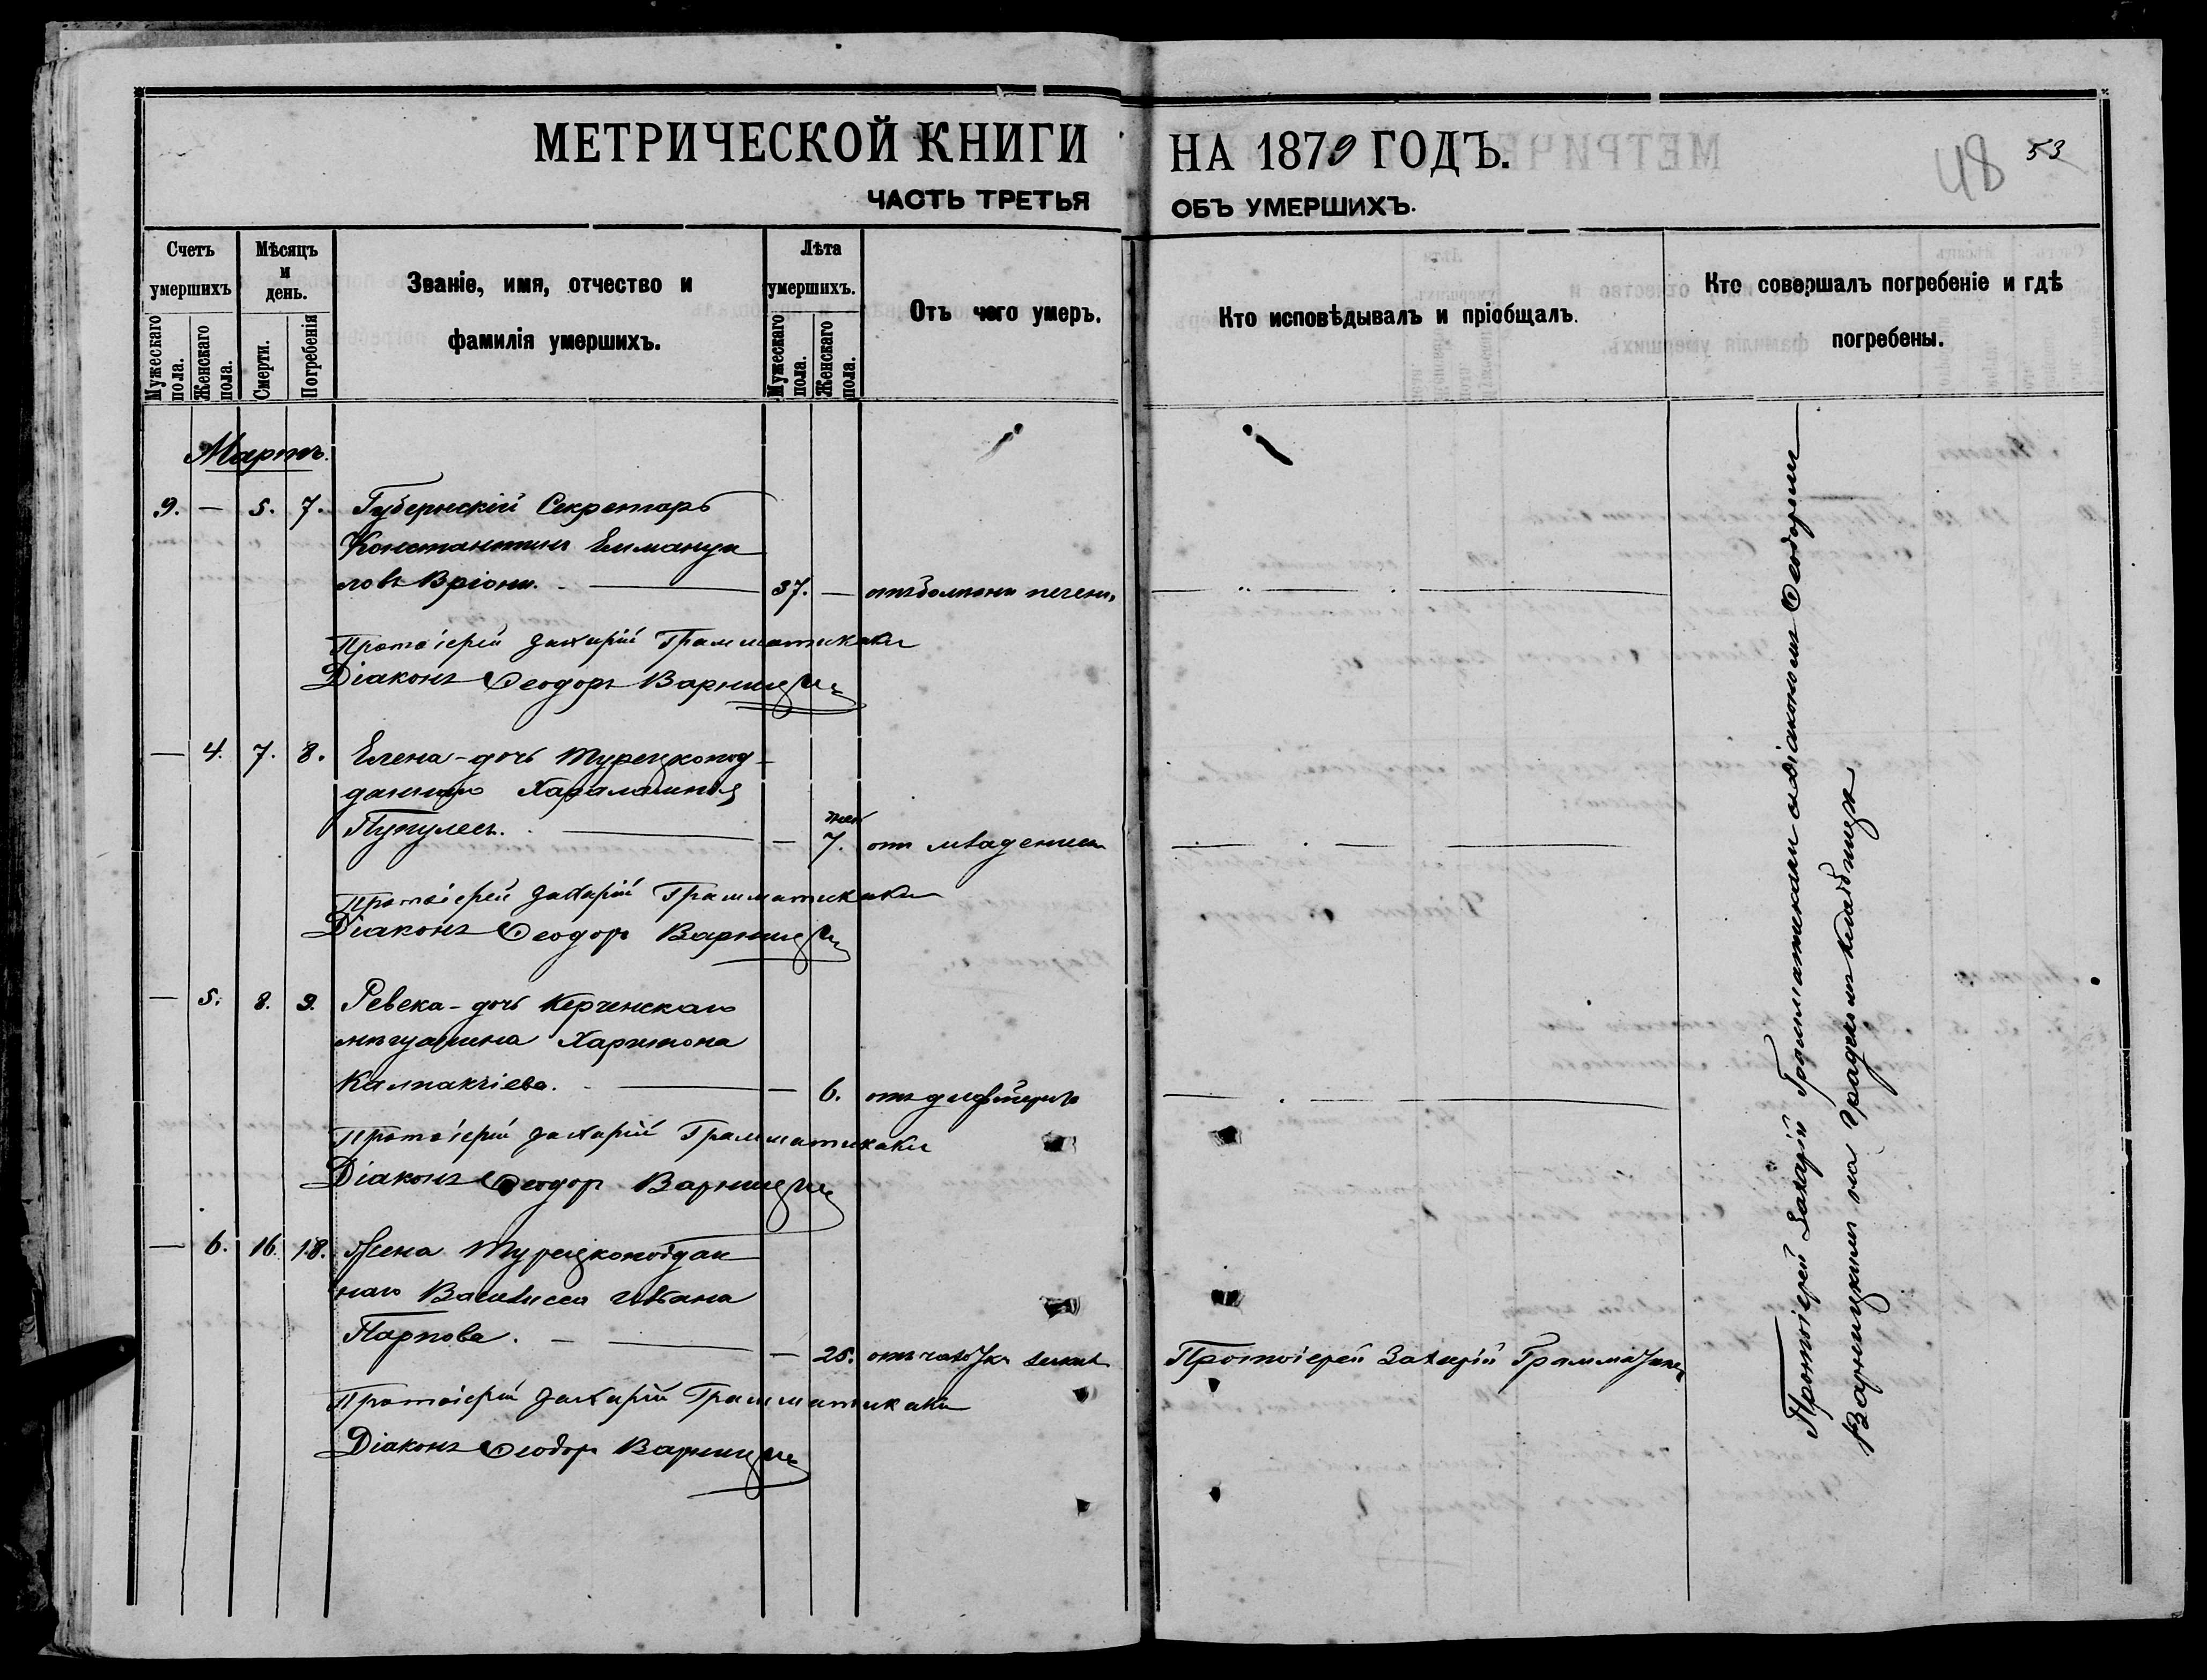 МЕТРИЧЕСКОЙ КНИГИ НА 1879 ГОДЪ.
48 53
ЧАСТЬ ТРЕТЬЯ ОБЪ УМЕРШИХЪ.
Счетъ умершихъ
Мужескаго пола.
Женскаго пола.
Мѣсяцъ и день.
Смерти.
Погребенія
Званіе, имя, отчество и фамилія умершихъ.
Лѣта умершихъ.
Мужескаго пола.
Женскаго пола.
Отъ чего умеръ.
Кто исповѣдывалъ и пріобщалъ.
Кто совершалъ погребеніе и гдѣ погребены.
Мартъ.
9. — 5. 7. Губернскій Секретарь
Константинъ Еммануи
ловъ Вріони. — 37. — отъ болѣзни печени.
Протоіерей Захарій Грамматикаки
Діаконъ Ѳеодоръ Варницкій
— 4. 7. 8. Елена - дочь турецкопод
даннаго Хараламбія
Пупулесъ. — — 7. дней отъ младенческ
Протоіерей Захарій Грамматикаки
Діаконъ Ѳеодоръ Варницкій
— 5. 8. 9. Ревека - дочь Керченскаго
мѣщанина Харитона
Калпакчіева. — — 6. отъ дифтерита
Протоіерей Захарій Грамматикаки
Діаконъ Ѳеодоръ Варницкій
— 6. 16. 18. Жена Турецкоподдан
наго Василисса Ивана
Парпова. — — 25. отъ чахотки
Протоіерей Захарій Грамматикаки
Протоіерей Захарій Грамматикаки
Діаконъ Ѳеодоръ Варницкій
Протоіерей Захарій Грамматикаки съ діакономъ Ѳеодоромъ
Варницкимъ на Градскомъ кладбищѣ